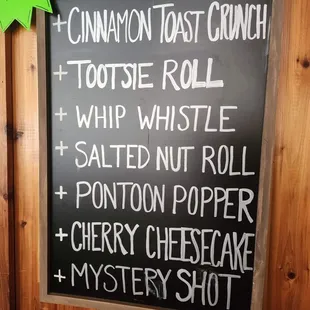 + CINNAMON TOAST CRUNCH
+ TOOTSIE ROLL
+ WHIP WHISTLE
+ SALTED NUT ROLL
+ PONTOON POPPER
+ CHERRY CHEESECAKE
+ MYSTERY SHOT